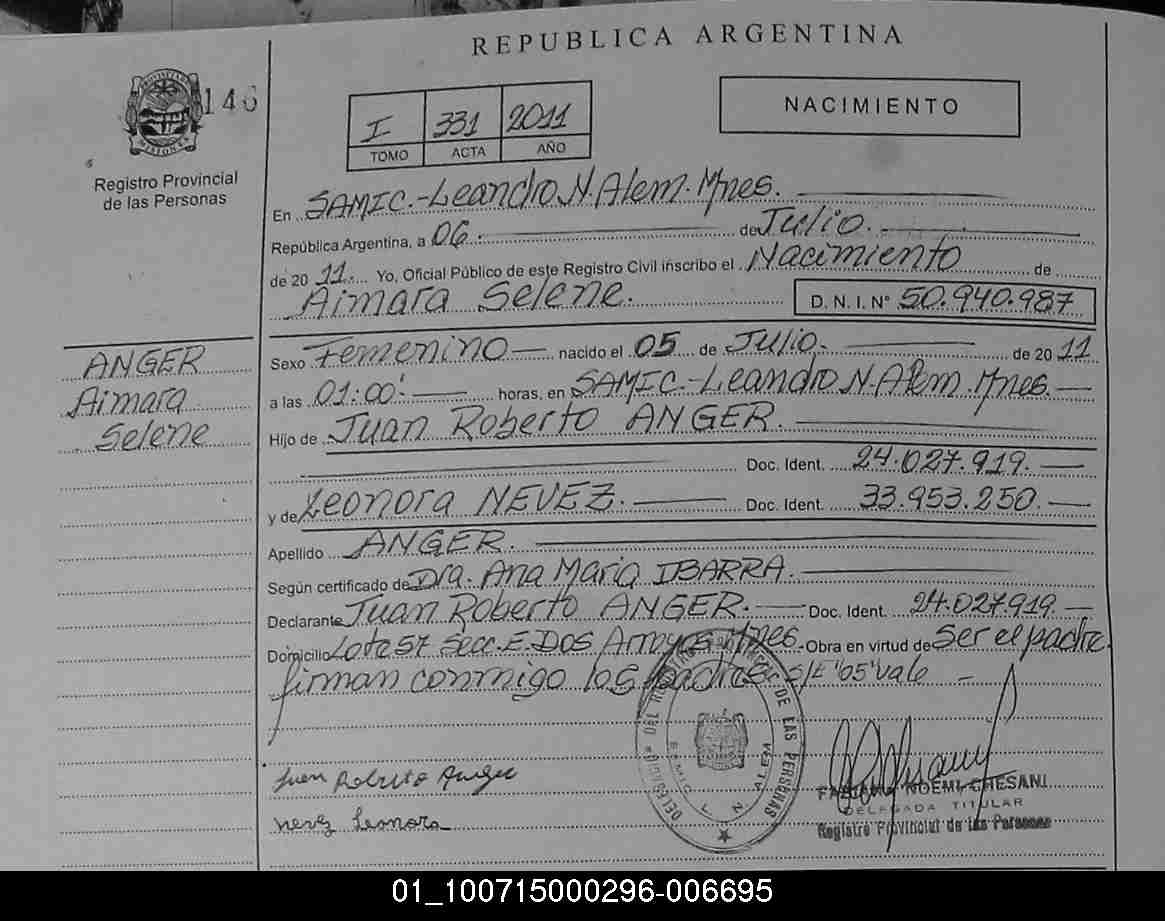 REPUBLICA ARGENTINA
146
PROVINCIA DE
MISIONES
Registro Provincial
de las Personas
I 331 2011
TOMO ACTA AÑO
NACIMIENTO
En SAMIC.-Leandro N. Alem. Mnes.
República Argentina, a 06. de Julio.
de 20 11. Yo, Oficial Público de este Registro Civil inscribo el Nacimiento de
Aimara Selene.
D. N. I. N° 50.940.987
ANGER
Aimara
Selene
Sexo Femenino nacido el 05 de Julio. de 20 11
a las 01:00' horas, en SAMIC.-Leandro N. Alem. Mnes.
Hijo de Juan Roberto ANGER.
Doc. Ident. 24.027.919.
y de Leonora NEVEZ. Doc. Ident. 33.953.250.
Apellido ANGER.
Según certificado de Dra. Ana Maria IBARRA.
Declarante Juan Roberto ANGER. Doc. Ident. 24.027.919.
Domicilio Lote 57 Secc. E. Dos Arroyos Mnes. Obra en virtud de Ser el padre.
firman conmigo los padres. s/E "05" vale
DEL REGISTRO DE LAS PERSONAS
SAMIC L. N. ALEM
Juan Roberto Anger
Nevez Leonora
NOEMI CHESANI
DELEGADA TITULAR
Registro Provincial de las Personas
01_100715000296-006695